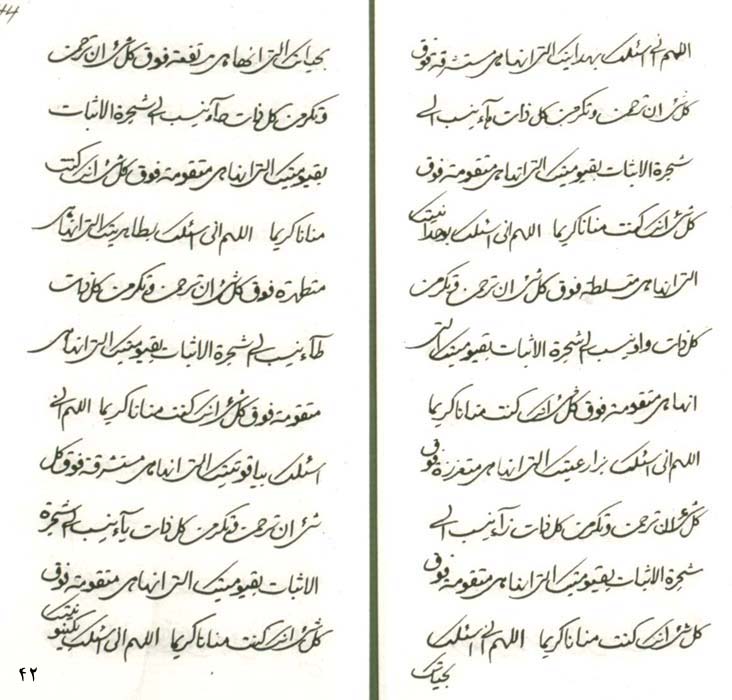 اللهم انی اسئلک بهدایتک التی انها هی مستشرقة فوق
کل شئ ان ترحمن و تکرمن کل ذات هآء ینسب الی
شجرة الاثبات بقیومیتک التی انها هی متقومة فوق
کل شئ انک کنت منانا کریما اللهم انی اسئلک بوحدانیتک
التی انها هی متسلطة فوق کل شئ ان ترحمن و تکرمن
کل ذات واو ینسب الی شجرة الاثبات بقیومیتک التی
انها هی متقومة فوق کل شئ انک کنت منانا کریما
اللهم انی اسئلک بزارعیتک التی انها هی متعززة فوق
کل شئ ان ترحمن و تکرمن کل ذات زآء ینسب الی
شجرة الاثبات بقیومیتک التی انها هی متقومة فوق
کل شئ انک کنت منانا کریما اللهم انی اسئلک
بحیاتک
بحیاتک التی انها هی مرتفعة فوق کل شئ ان ترحمن
و تکرمن کل ذات حآء ینسب الی شجرة الاثبات
بقیومیتک التی انها هی متقومة فوق کل شئ انک کنت
منانا کریما اللهم انی اسئلک بطاهریتک التی انها هی
متطهرة فوق کل شئ ان ترحمن و تکرمن کل ذات
طآء ینسب الی شجرة الاثبات بقیومیتک التی انها هی
متقومة فوق کل شئ انک کنت منانا کریما اللهم انی
اسئلک بیاقوتیتک التی انها هی مستشرقة فوق کل
شئ ان ترحمن و تکرمن کل ذات یآء ینسب الی شجرة
الاثبات بقیومیتک التی انها هی متقومة فوق
کل شئ انک کنت منانا کریما اللهم انی اسئلک بکینونیتک
۴۲